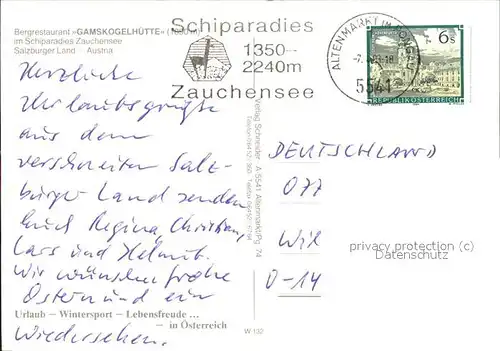 Bergrestaurant »GAMSKOGELHÜTTE«
im Schiparadies Zauchensee
Salzburger Land Austria
Schiparadies
1350-
2240m
Zauchensee
ALTENMARKT IM PONGAU
5541
6 S
REPUBLIK ÖSTERREICH
Herzliche
Urlaubsgrüße
aus dem
verschneiten Salz-
burger Land senden
Euch Regina, Christian,
Lars und Helmut.
Wir wünschen frohe
Ostern und ein
Wiedersehen.
Urlaub – Wintersport – Lebensfreude ...
– in Österreich
Verlag Schneider A-5541 Altenmarkt/Pg. 74
W 132
DEUTSCHLAND
O-14
privacy protection (c)
Datenschutz